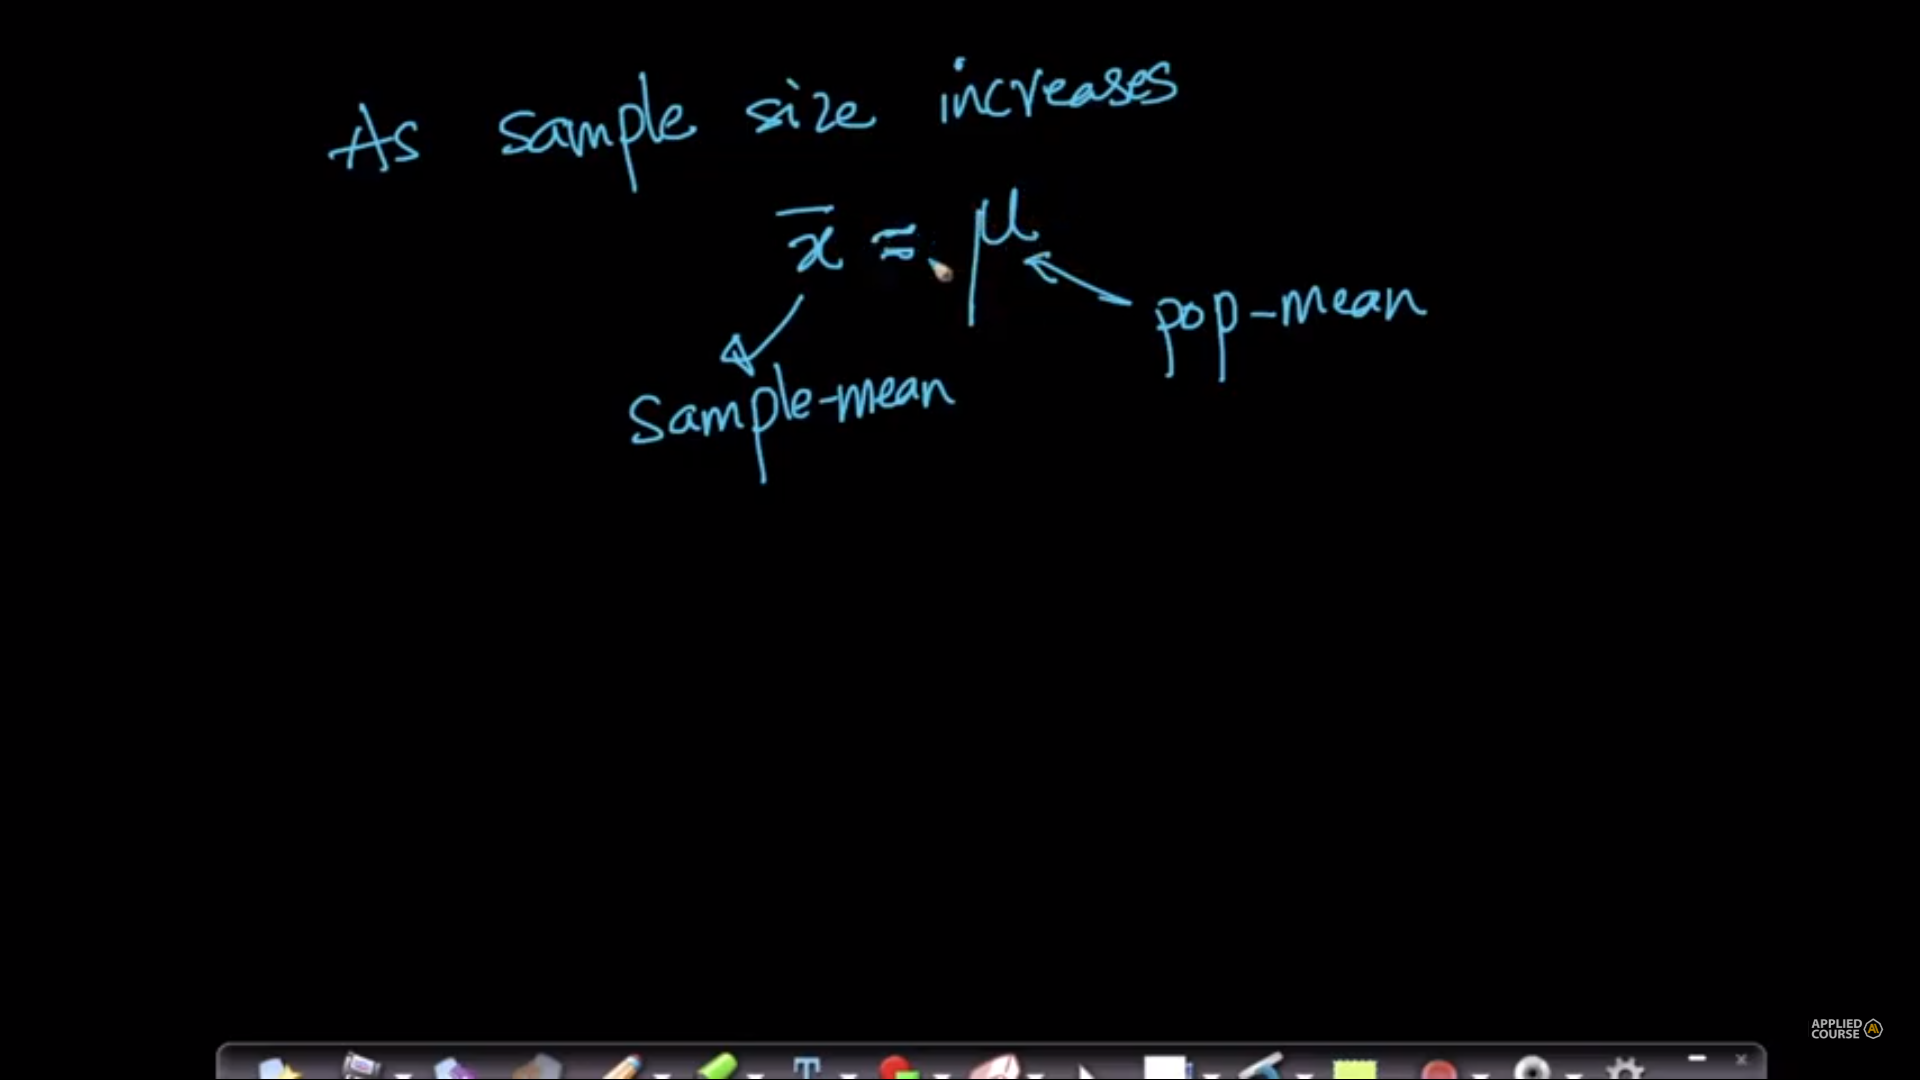 As sample size increases
x̄ ≈ μ
pop-mean
sample-mean
APPLIED
COURSE